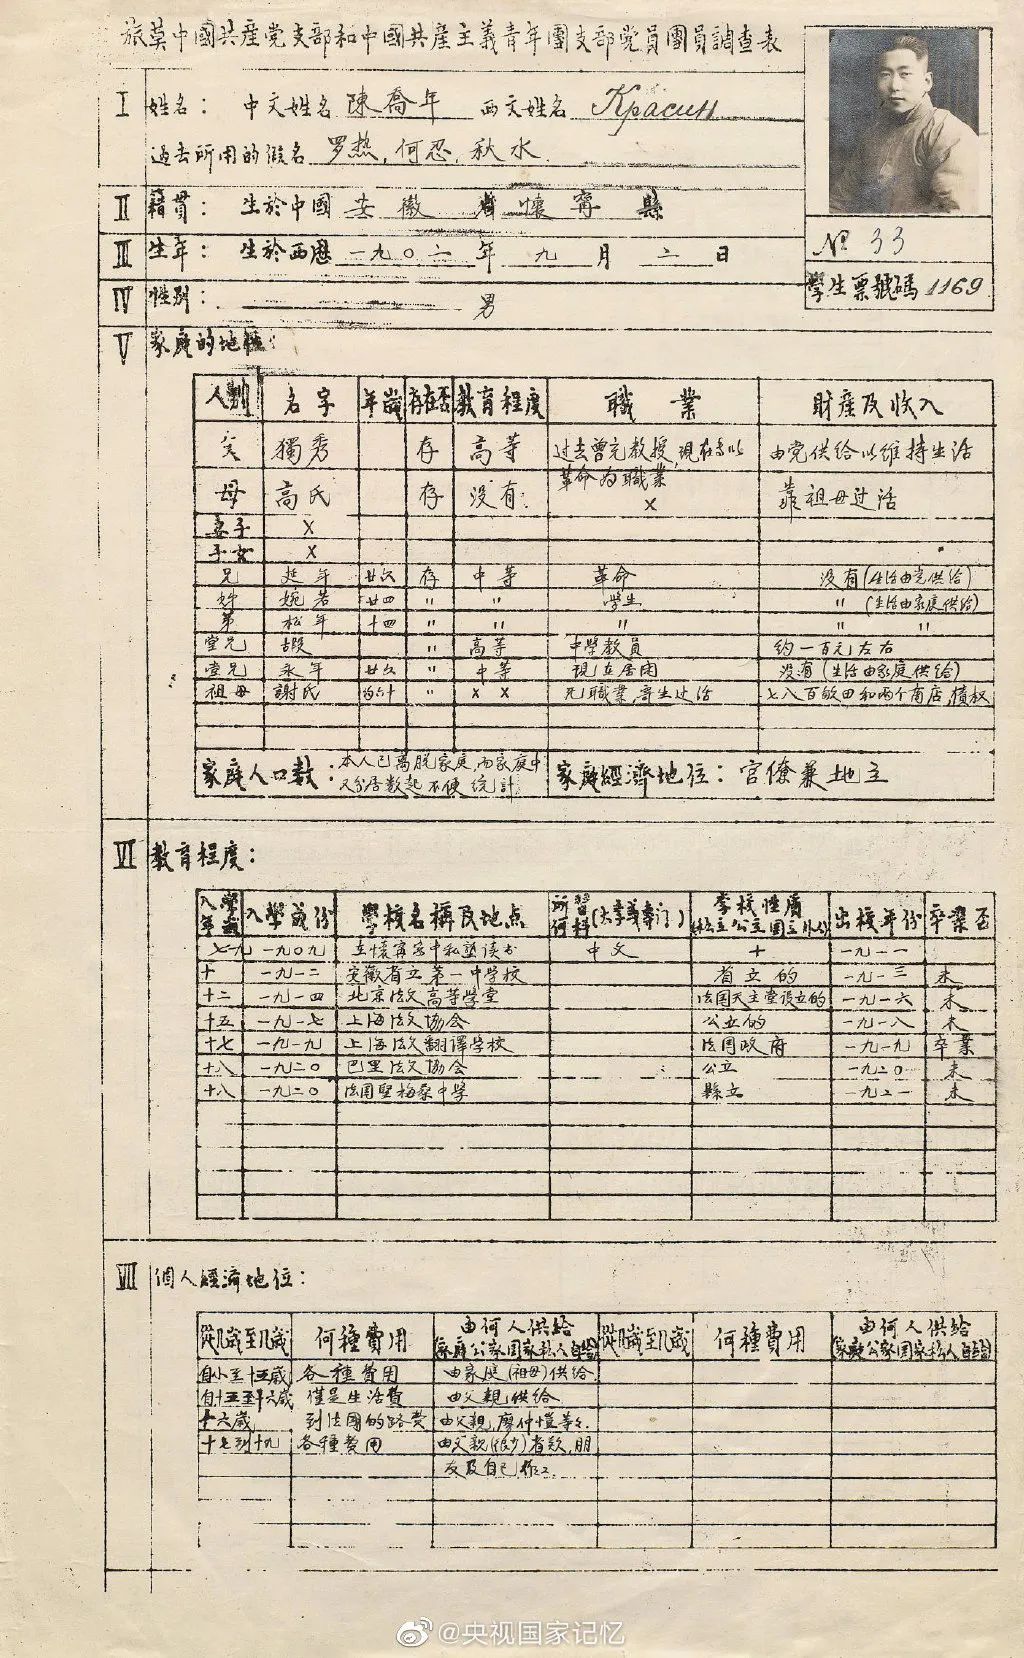 旅莫中國共産党支部和中國共産主義青年團支部党員團員調查表
I 姓名： 中文姓名 陳喬年 西文姓名 Красин
过去所用的假名 罗热，何忍，秋水.
II 籍貫： 生於中國 安徽 省 懷寧 縣
III 生年： 生於西歷 一九〇二 年 九 月 二 日
IV 性别： 男
№ 33
學生票號碼 1169
V 家庭的地位：
人别 名字 年歲 存在否 教育程度 職業 財產及收入
父 獨秀 存 高等 过去曾充教授，現在专以革命为職業 由党供给以维持生活
母 高氏 存 没有. × 靠祖母过活
妻子 ×
子女 ×
兄 延年 廿六 存 中等 革命 没有(生活由党供给)
姊 婉若 廿四 〃 〃 学生 〃 (生活由家庭供给)
弟 松年 十四 〃 〃 〃 〃 〃
堂兄 嘏 〃 高等 中學教員 约一百元左右
堂兄 永年 廿六 〃 中等 現在居闲 没有(生活由家庭供给)
祖母 謝氏 〃 × × 无職業，寄生过活 七八百畝田和两个商店，債权
家庭人口數：本人已离脱家庭，而家庭中又分居数起不便统計
家庭經濟地位：官僚兼地主
VI 教育程度：
入學年歲 入學歲份 學校名稱及地点 所習何科(大学或專门) 学校性質(私立公立国立外公) 出校年份 卒業否
七 一九〇九 在懷寧家中私塾读书 中文 十 一九一一
十 一九一二 安徽省立第一中学校 省立的 一九一三 未
十二 一九一四 北京法文高等学堂 法国天主堂设立的 一九一六 未
十五 一九一七 上海法文协会 公立的 一九一八 未
十七 一九一九 上海法文翻譯学校 法国政府 一九一九 卒業
十八 一九二〇 巴里法文协会 公立 一九二〇 未
十八 一九二〇 法国聖梅桑中学 縣立 一九二一 未
VII 個人經濟地位：
從几歲至几歲 何種費用 由何人供給(家庭公家国家私人自给) 從几歲至几歲 何種費用 由何人供給(家庭公家国家私人自给)
自小至十五歲 各種費用 由家庭(祖母)供給
自十五至十六歲 僅是生活費 由父親供給
十六歲 到法國的路费 由父親，廖仲愷等.
十七到十九 各種費用 由父親(很少)者欵，朋友及自己作工.
@央视国家记忆